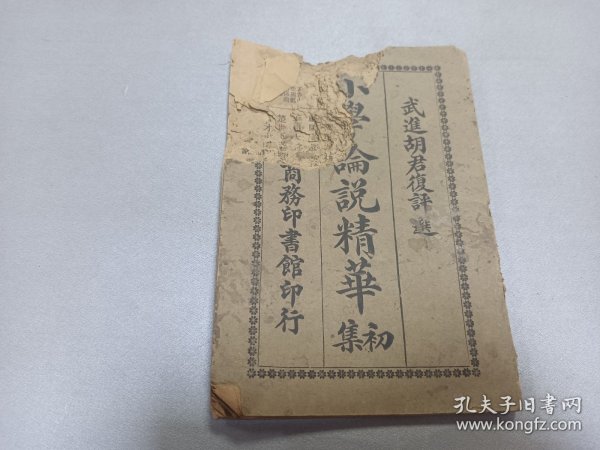 武進胡君復評選
小學論說精華
初集
商務印書館印行
孔夫子旧书网
www.kongfz.com